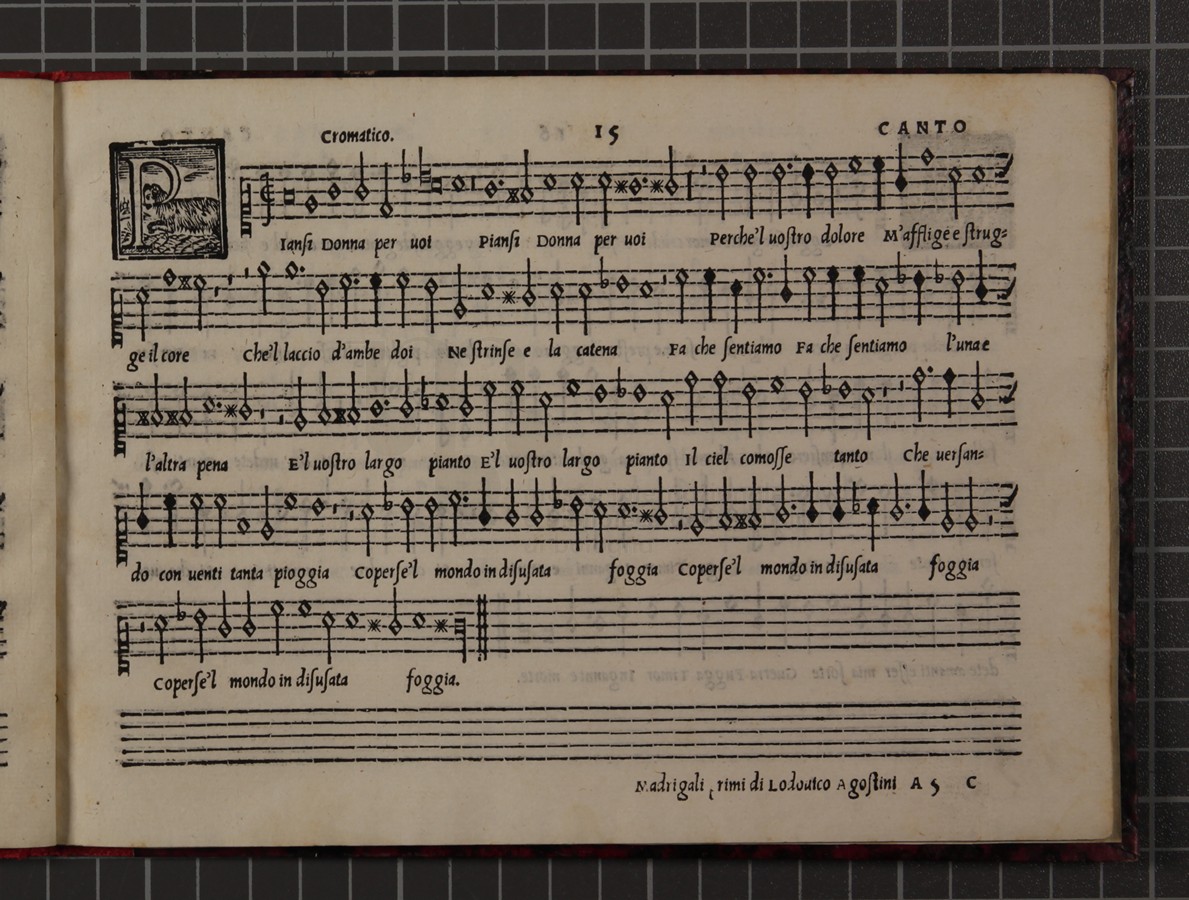 Cromatico. 15 CANTO
PIansi Donna per uoi Piansi Donna per uoi Perche'l uostro dolore M'afflige e strug=
ge il core Che'l laccio d'ambe doi Ne strinse e la catena Fa che sentiamo Fa che sentiamo l'una e
l'altra pena E'l uostro largo pianto E'l uostro largo pianto Il ciel comosse tanto Che uersan=
do con uenti tanta pioggia Coperse'l mondo in disusata foggia Coperse'l mondo in disusata foggia
Coperse'l mondo in disusata foggia.
Madrigali primi di Lodouico Agostini A 5 C